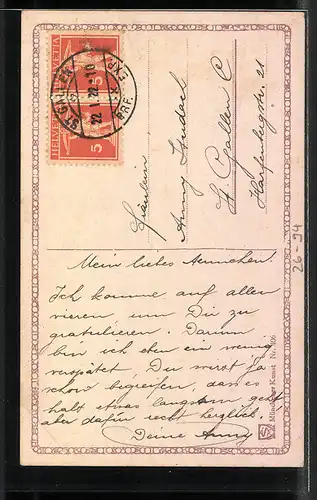 HELVETIA
5
HELVETIA
5
ST. GALLEN
22.I.28.-10
Fräulein
Anny
St. Gallen C
Harfenbergstr. 21
26-94
Mein liebes Aennchen!
Ich komme auf allen
vieren um Dir zu
gratulieren. Darum
bin ich eben ein wenig
verspätet, Du wirst ja
schon begreifen, dass es
halt etwas langsam geht
aber dafür recht herzlich.
Deine Anny
Münchner Kunst Nr.